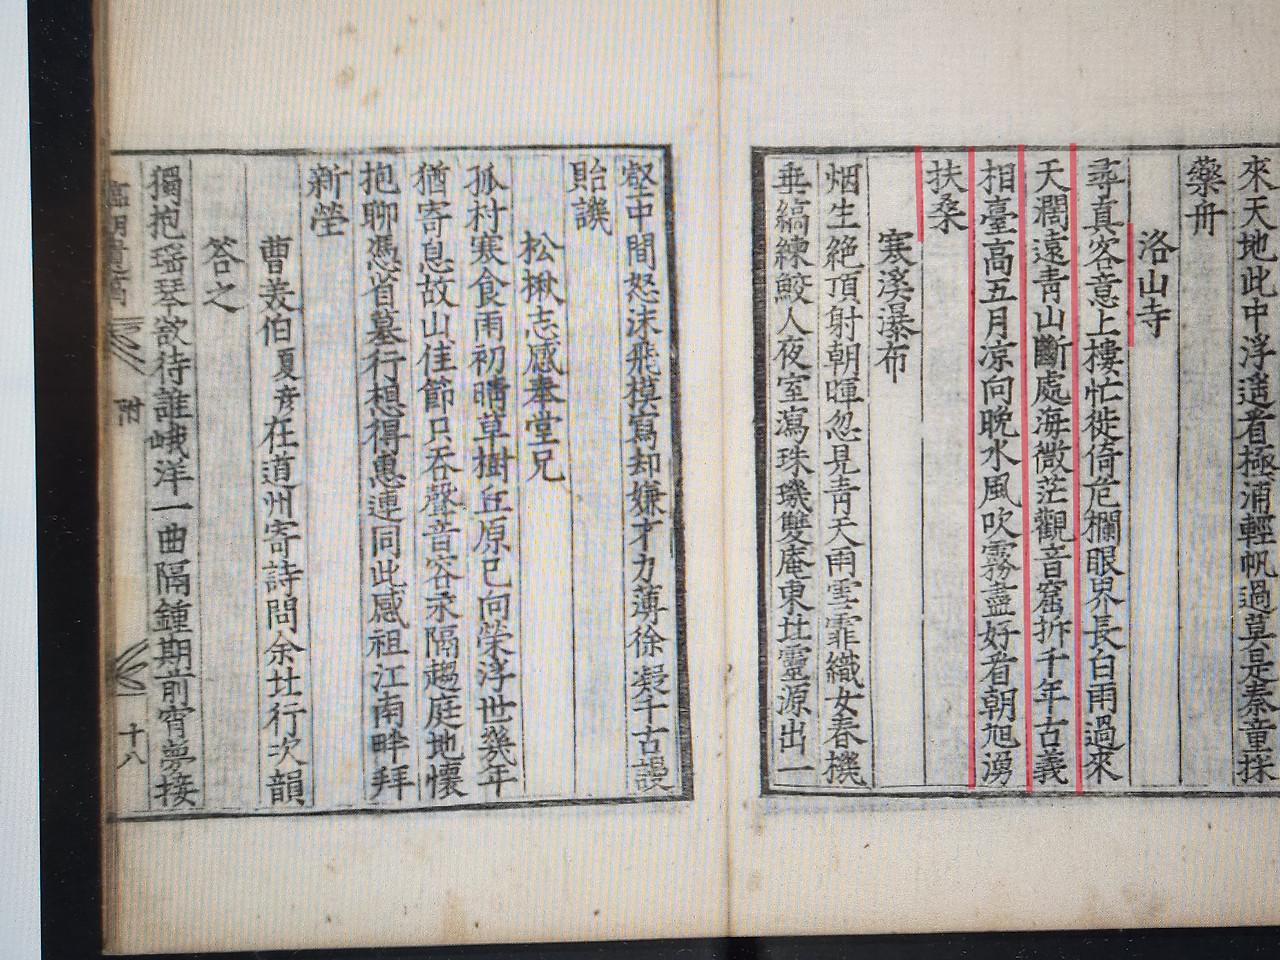 來天地此中浮遥看極浦輕帆過莫是秦童採
藥舟
洛山寺
尋真客意上樓忙徙倚危欄眼界長白雨過來
天濶遠靑山斷處海微茫觀音窟拆千年古義
相臺高五月凉向晩水風吹霧盡好看朝旭湧
扶桑
寒溪瀑布
烟生絶頂射朝暉忽見靑天雨雪霏織女春機
垂縞練鮫人夜室瀉珠璣雙庵東畔靈源出一
壑中間怒沫飛模寫却嫌才力薄徐凝千古謾
貽譏
松楸志感奉堂兄
孤村寒食雨初晴草樹丘原已向榮浮世幾年
猶寄息故山佳節只呑聲音容永隔趨庭地懷
抱聊憑省墓行想得惠連同此感祖江南畔拜
新塋
曹羲伯夏彦在道州寄詩問余北行次韻
答之
獨抱瑶琴欲待誰峨洋一曲隔鍾期前宵夢接
附
十八